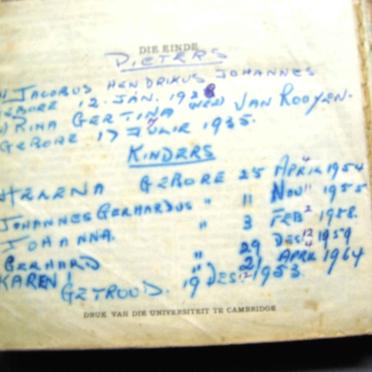 DIE EINDE
PIETERS
JACOBUS HENDRIKUS JOHANNES
GEBORE 12 JAN. 1928
RINA GERTINA NEE VAN ROOYEN.
GEBORE 17 JULIE 1935.
KINDERS
HELENA GEBORE 25 APRIL 4 1954
JOHANNES GERHARDUS " 11 NOV 11 1955
JOHANNA. " 3 FEB 2 1958.
GERHARD " 29 DES 12 1959
KAREN " 2 APRIL 4 1964
GETROUD. 19 DES 12 1953.
DRUK VAN DIE UNIVERSITEIT TE CAMBRIDGE